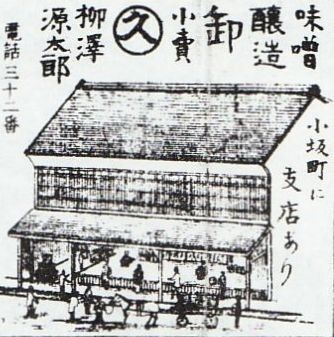 味噌
醸造
卸
小賣
久
柳澤
源太郎
電話三十二番
小坂町に
支店あり